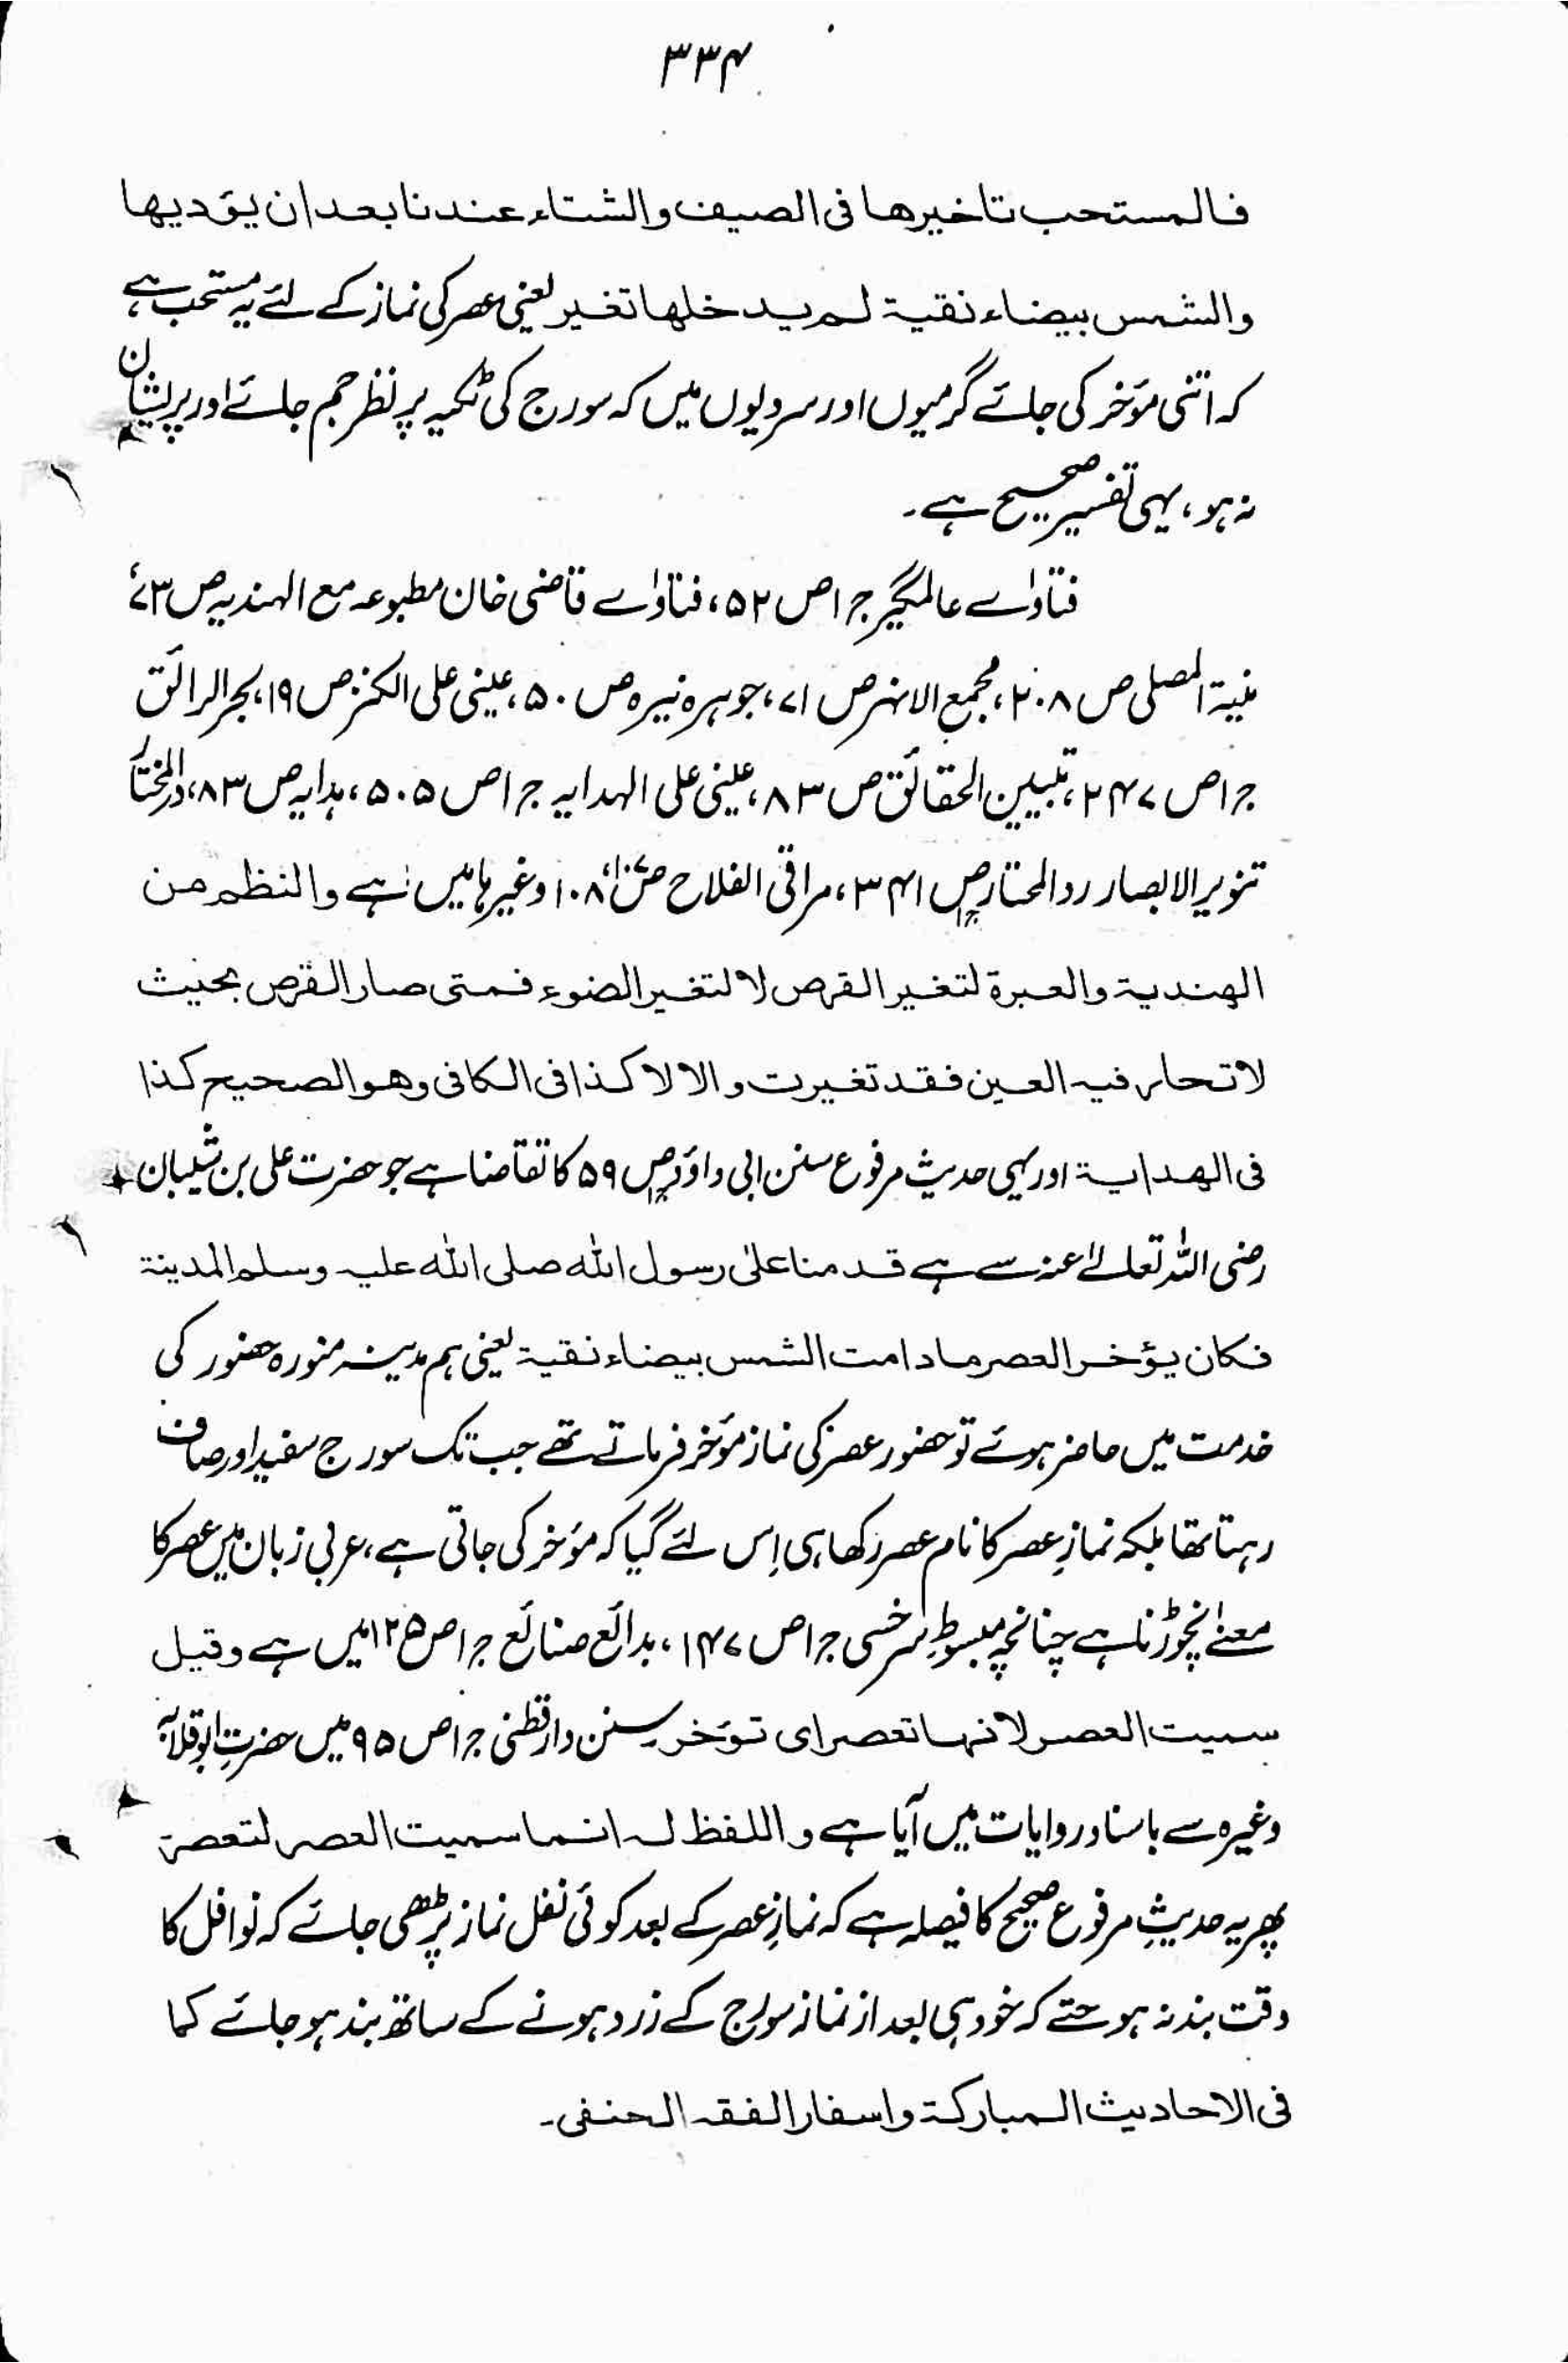 ۳۳۴
فالمستحب تاخیرها فی الصیف والشتاء عندنا بعد ان یؤدیها
والشمس بیضاء نقیة لم یدخلها تغیر یعنی عصر کی نماز کے لئے یہ مستحب ہے
کہ اتنی مؤخر کی جائے گرمیوں اور سردیوں میں کہ سورج کی ٹکیہ پر نظر جم جائے اور پریشان
نہ ہو، یہی تفسیر صحیح ہے۔
فتاوٰے عالمگیر جر ا ص ۵۲، فتاوٰے قاضی خان مطبوعہ مع الہندیہ ص ۷۳،
منیۃ المصلی ص ۲۰۸، مجمع الانہر ص ۷۱، جوہرہ نیرہ ص ۵۰، عینی علی الکنز ص ۱۹، بحر الرائق
جر ا ص ۲۴۷، تبیین الحقائق ص ۸۳، عینی علی الہدایہ جر ا ص ۵۰۵، ہدایہ ص ۸۳، درالمختار
تنویر الابصار رد المحتار ص ۳۴۱، مراقی الفلاح ص ۱۰۷، ۱۰۸ وغیرہا میں ہے والنظم من
الهندیة والعبرة لتغیر القرص لا لتغیر الضوء فمتی صار القرص بحیث
لا تحار فیه العین فقد تغیرت والا لا کذا فی الکافی وهو الصحیح کذا
فی الهدایة اور یہی حدیث مرفوع سنن ابی داؤد ص ۵۹ کا تقاضا ہے جو حضرت علی بن شیبان
رضی اللہ تعالےٰ عنہ سے ہے قدمنا علیٰ رسول الله صلی الله علیه وسلم المدینة
فکان یؤخر العصر مادامت الشمس بیضاء نقیة یعنی ہم مدینہ منورہ حضور کی
خدمت میں حاضر ہوئے تو حضور عصر کی نماز مؤخر فرماتے تھے جب تک سورج سفید اور صاف
رہتا تھا بلکہ نمازِ عصر کا نام عصر رکھا ہی اِس لئے گیا کہ مؤخر کی جاتی ہے، عربی زبان میں عصر کا
معنےٰ نچوڑنا ہے چنانچہ مبسوطِ سرخسی جر ا ص ۱۴۷، بدائع صنائع جر ا ص ۱۲۵ میں ہے وقیل
سمیت العصر لانها تعصر ای تؤخر۔ سنن دارقطنی جر ا ص ۹۵ میں حضرتِ ابو قلابہ
وغیرہ سے باسناد روایات میں آیا ہے واللفظ له انما سمیت العصر لتعصر
پھر یہ حدیثِ مرفوع صحیح کا فیصلہ ہے کہ نمازِ عصر کے بعد کوئی نفل نماز نہ پڑھی جائے کہ نوافل کا
وقت بند نہ ہو حتےٰ کہ خود ہی بعد از نماز سورج کے زرد ہونے کے ساتھ بند ہو جائے کما
فی الاحادیث المبارکة واسفار الفقه الحنفی۔